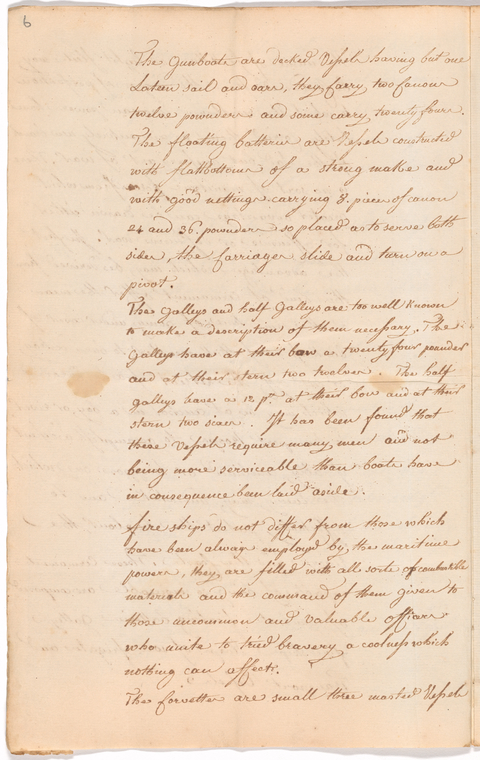 6
The Gunboats are decked Vessels having but one
Lateen sail and oars, they carry two canons
twelve pounders and some carry twenty fours.
The floating batteries are Vessels constructed
with flatbottoms of a strong make and
with good nettings carrying 8. pieces of canon
24 and 36. pounders so placed as to serve both
sides, the Carriages slide and turn on a
pivot.
The Galleys and half Galleys are too well known
to make a description of them necessary. The
Galleys have at their bow a twenty four pounder
and at their stern two twelves. The half
galleys have a 12 pr. at their bow and at their
stern two sixes. It has been found that
these Vessels require many men and not
being more serviceable than boats have
in consequence been laid aside.
fire ships do not differ from those which
have been always employed by the maritime
powers, they are filled with all sorts of combustible
materials and the command of them given to
those uncommon and valuable officers
who unite to tried bravery a coolness which
nothing can affect.
The Corvettes are small three masted Vessels